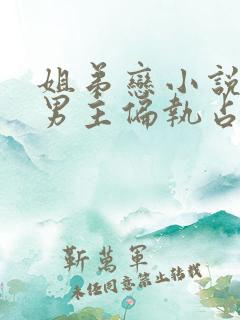 姐弟戀小說
男主偏執占
靳萬軍
未经同意禁止转载